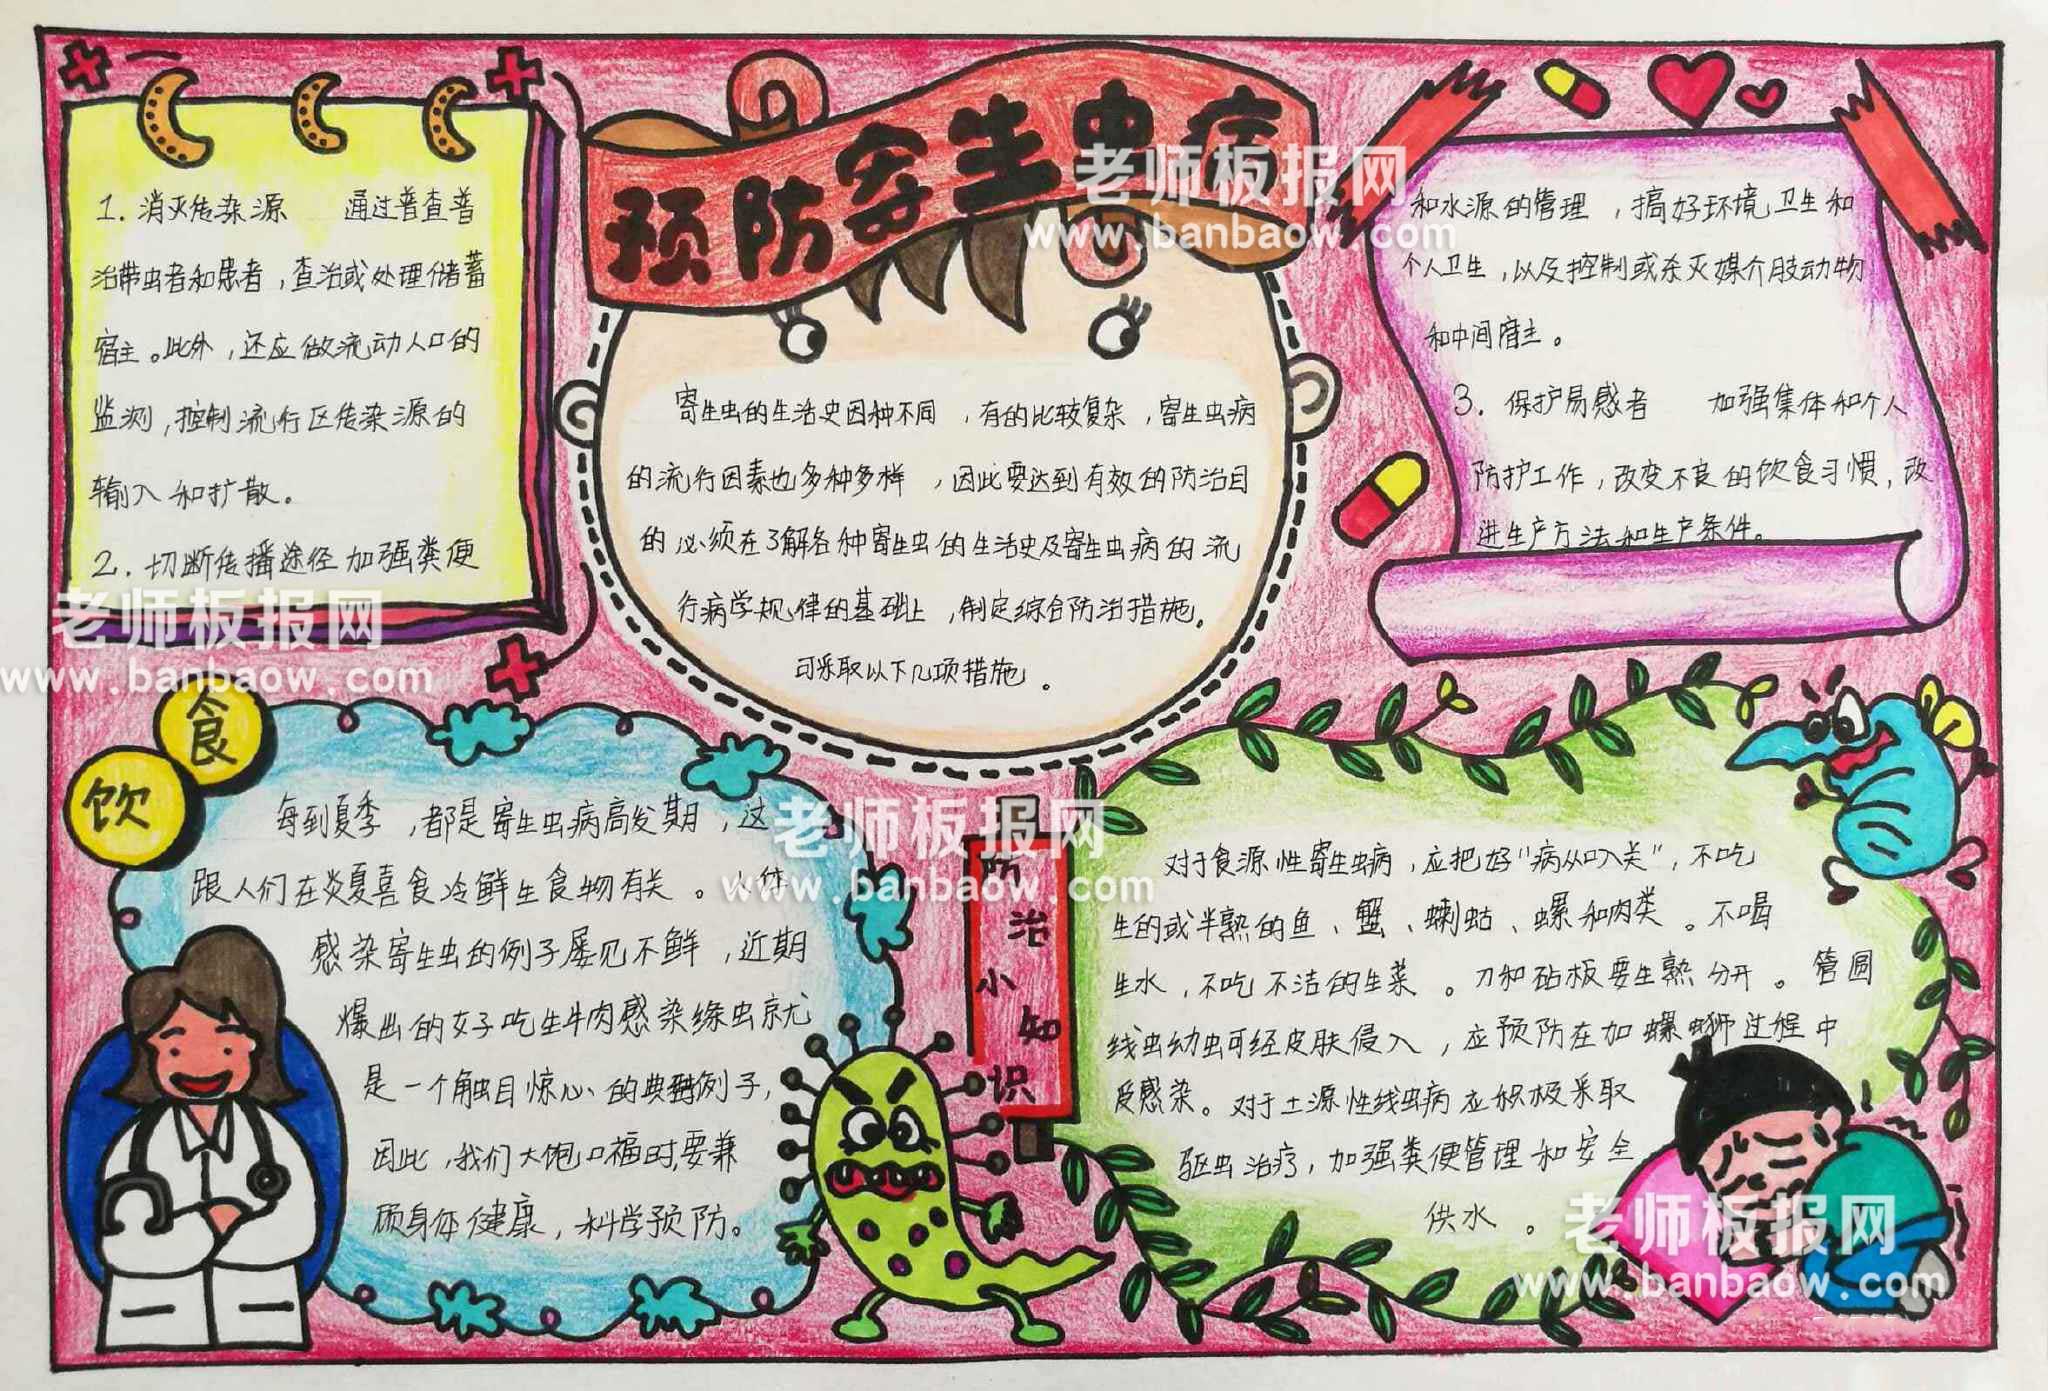 预防寄生虫病
1. 消灭传染源 通过普查普
治带虫者和患者，查治或处理储蓄
宿主。此外，还应做流动人口的
监测，控制流行区传染源的
输入和扩散。
2. 切断传播途径 加强粪便
寄生虫的生活史因种不同，有的比较复杂，寄生虫病
的流行因素也多种多样，因此要达到有效的防治目
的必须在了解各种寄生虫的生活史及寄生虫病的流
行病学规律的基础上，制定综合防治措施。
可采取以下几项措施。
和水源的管理，搞好环境卫生和
个人卫生，以及控制或杀灭媒介肢动物
和中间宿主。
3. 保护易感者 加强集体和个人
防护工作，改变不良的饮食习惯，改
进生产方法和生产条件。
饮食
每到夏季，都是寄生虫病高发期，这
跟人们在炎夏喜食冷鲜生食物有关。人体
感染寄生虫的例子屡见不鲜，近期
爆出的女子吃生牛肉感染绦虫就
是一个触目惊心的典型例子，
因此，我们大饱口福时，要兼
顾身体健康，科学预防。
防治小知识
对于食源性寄生虫病，应把好“病从口入关”，不吃
生的或半熟的鱼、蟹、蝲蛄、螺和肉类。不喝
生水，不吃不洁的生菜。刀和砧板要生熟分开。管圆
线虫幼虫可经皮肤侵入，应预防在加螺蛳过程中
受感染。对于土源性线虫病应积极采取
驱虫治疗，加强粪便管理和安全
供水。
老师板报网
www.banbaow.com
老师板报网
www.banbaow.com
老师板报网
www.banbaow.com
老师板报网
www.banbaow.com